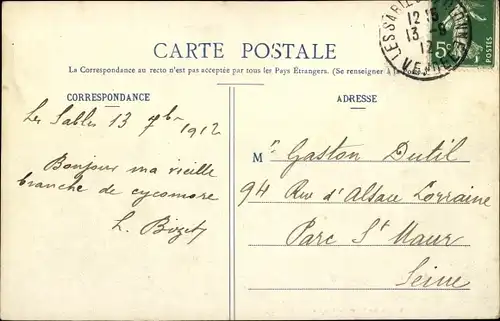 CARTE POSTALE
La Correspondance au recto n'est pas acceptée par tous les Pays Etrangers. (Se renseigner à la Poste)
CORRESPONDANCE
ADRESSE
Les Sables 13 7bre 1912
Bonjour ma vieille
branche de cycomore
L. Bizet
Mr Gaston Dutil
94 Rue d'Alsace Lorraine
Parc St Maur
Seine
12 15
13 - 8
12
VENDEE
5c
POSTES